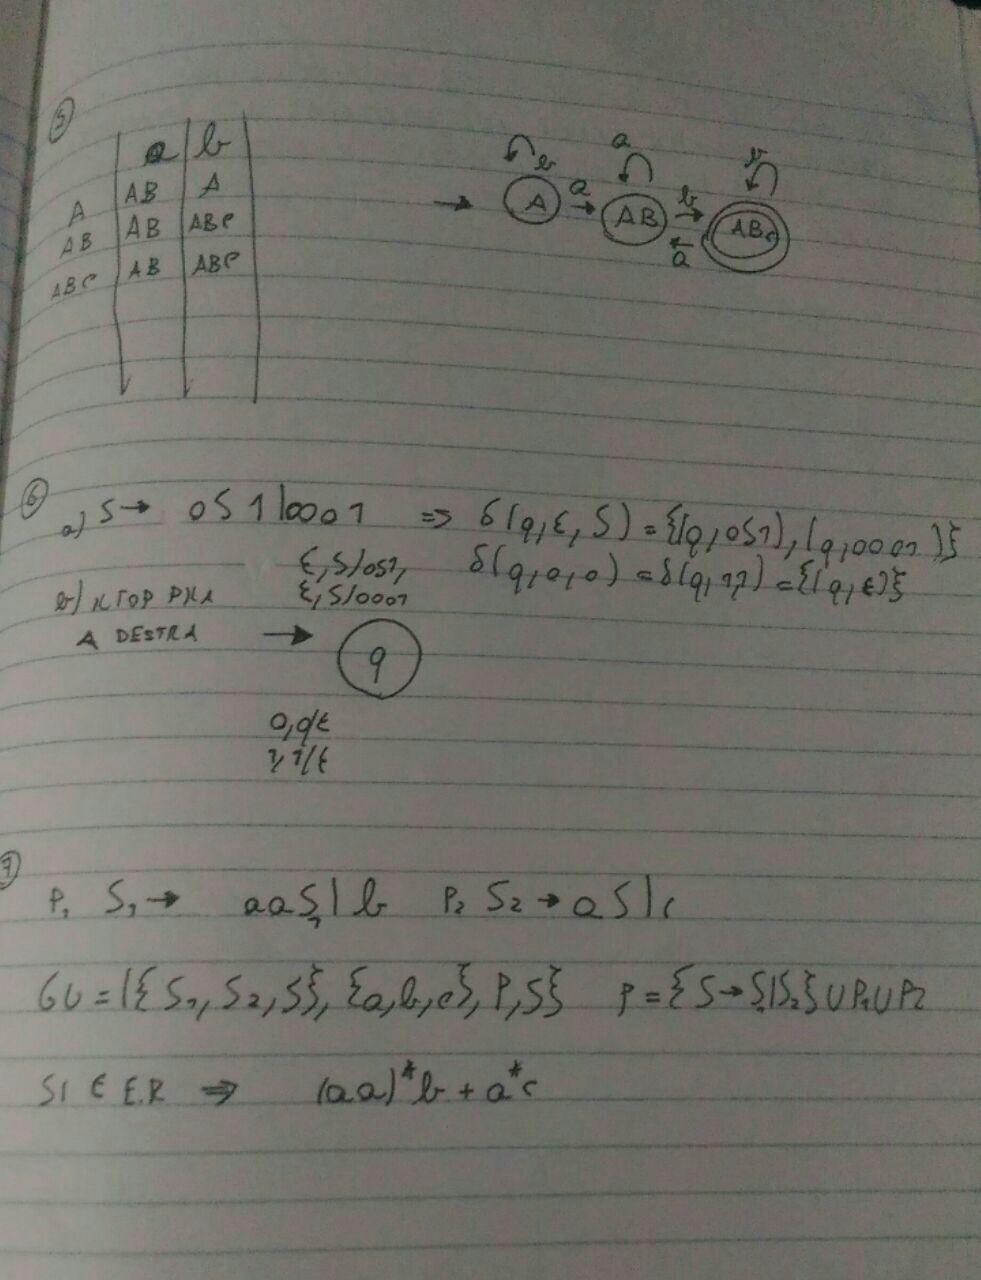 5)
a | b
A | AB | A
AB | AB | ABC
ABC | AB | ABC
→ A a → AB b → ABC
b a b
← a
6)
a) S → 0S1|0001 => δ(q,ε,S) = {(q,0S1),(q,0001)}
δ(q,0,0) = δ(q,1,1) = {(q,ε)}
b) A DESTRA
ε,S/0S1,
ε,S/0001
→ q
0,0/ε
1,1/ε
7)
P₁ S₁ → aaS₁|b P₂ S₂ → aS|c
GU = ({S₁,S₂,S},{a,b,c},P,S} P = {S→S₁|S₂} ∪ P₁ ∪ P2
SI È E.R => (aa)*b + a*c